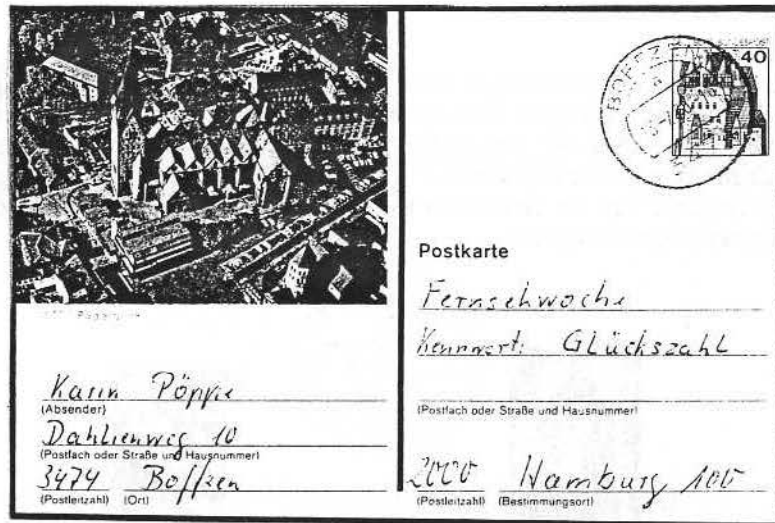 BOFFZ
40
Postkarte
Fernsehwoche
Kennwort: Glückszahl
(Postfach oder Straße und Hausnummer)
2000 Hamburg 100
(Postleitzahl) (Bestimmungsort)
Karin
(Absender)
Dahlienweg 10
(Postfach oder Straße und Hausnummer)
3474 Boffzen
(Postleitzahl) (Ort)